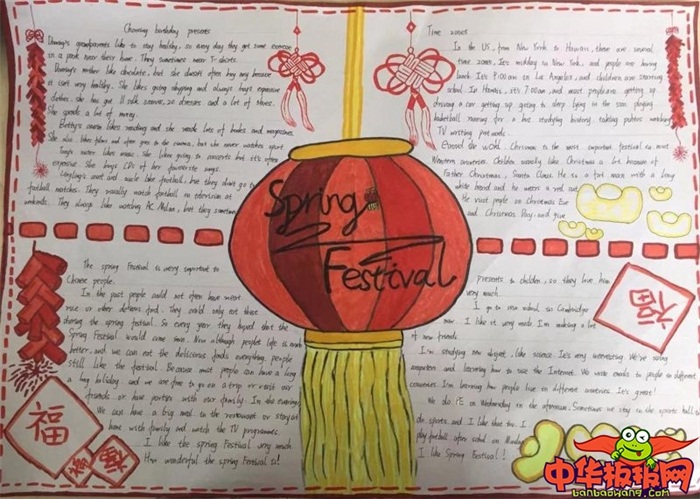 Choosing birthday presents
Daming's grandparents like to stay healthy, so every day they get some exercise
in a park near their home. They sometimes wear T-shirts.
Daming's mother like chocolate, but she doesn't often buy any because
it isn't very healthy. She likes going shopping and always buys expensive
clothes. she has got silk scarves, 20 dresses and a lot of shoes.
She spends a lot of money.
Betty's cousin likes reading and she reads lots of books and magazines.
She also likes films and often goes to the cinema, but she never watches sport.
sister likes music. She likes going to concerts but it's often
expensive. She buys CDs of her favourite songs.
Lingling's aunt and uncle like football, but they don't go to
football matches. They usually watch football on television at
weekends. They always like watching AC Milan, but they sometimes
Time zones
In the US, from New York to Hawaii, there are several
time zones. It's midday in New York and people are having
lunch. It's 9:00 am in Los Angeles and children are starting
school. In Hawaii, it's 7:00 am, and most people are getting up.
driving a car, getting up, going to sleep lying in the sun, playing
basketball for a bus studying history, taking photos watching
TV writing postcards.
the world Christmas is the most important festival in most
Western countries. Children usually like Christmas a lot because of
Father Christmas, Santa Claus. He is a fat man with a long
white beard and he wears a red coat.
He visit people on Christmas Eve
and Christmas Day, and give
Spring
Festival
The spring Festival is very important to
Chinese people.
In the past people could not often have meat.
rice or other delicious food. They could only eat these
during the spring festival. So every year they hoped that the
Spring Festival would come soon. Now although people's life is much
better, and we can eat the delicious foods everything people
still like the festival. Because most people can have a long
a long holiday, and we are free to go on a trip or visit our
friends or have parties with our family. In the evening
We can have a big meal in the restaurant or stay at
home with family and watch the TV programmes.
I like the spring Festival very much.
How wonderful the spring Festival is!
presents to children, so they love him
very much.
I go to new school in Cambridge
now I like it very much I'm making a lot
of new friends.
I'm studying new subject, like science. It's very interesting. We're using
computers and learning how to use the Internet. We write emails to people in different
countries I'm learning how people live in different countries. It's great!
We do PE on Wednesday in the afternoon. Sometimes we stay in the sports hall
do sports, and I like that too. I
play football after school on Monday
I like Spring Festival!
福
福
福
中华板报网
banbaowang.com